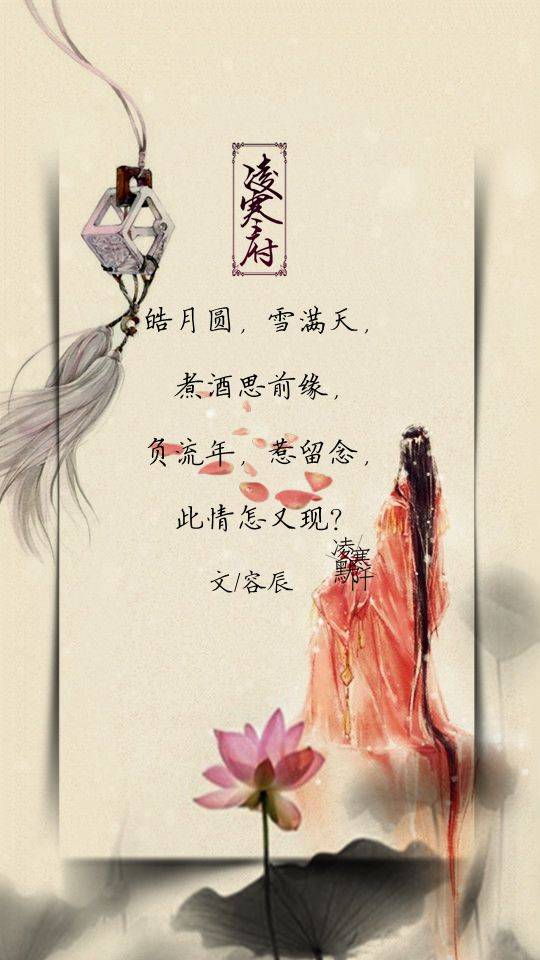 凌寒府
皓月圆，雪满天，
煮酒思前缘，
负流年，惹留念，
此情怎又现？
文/容辰